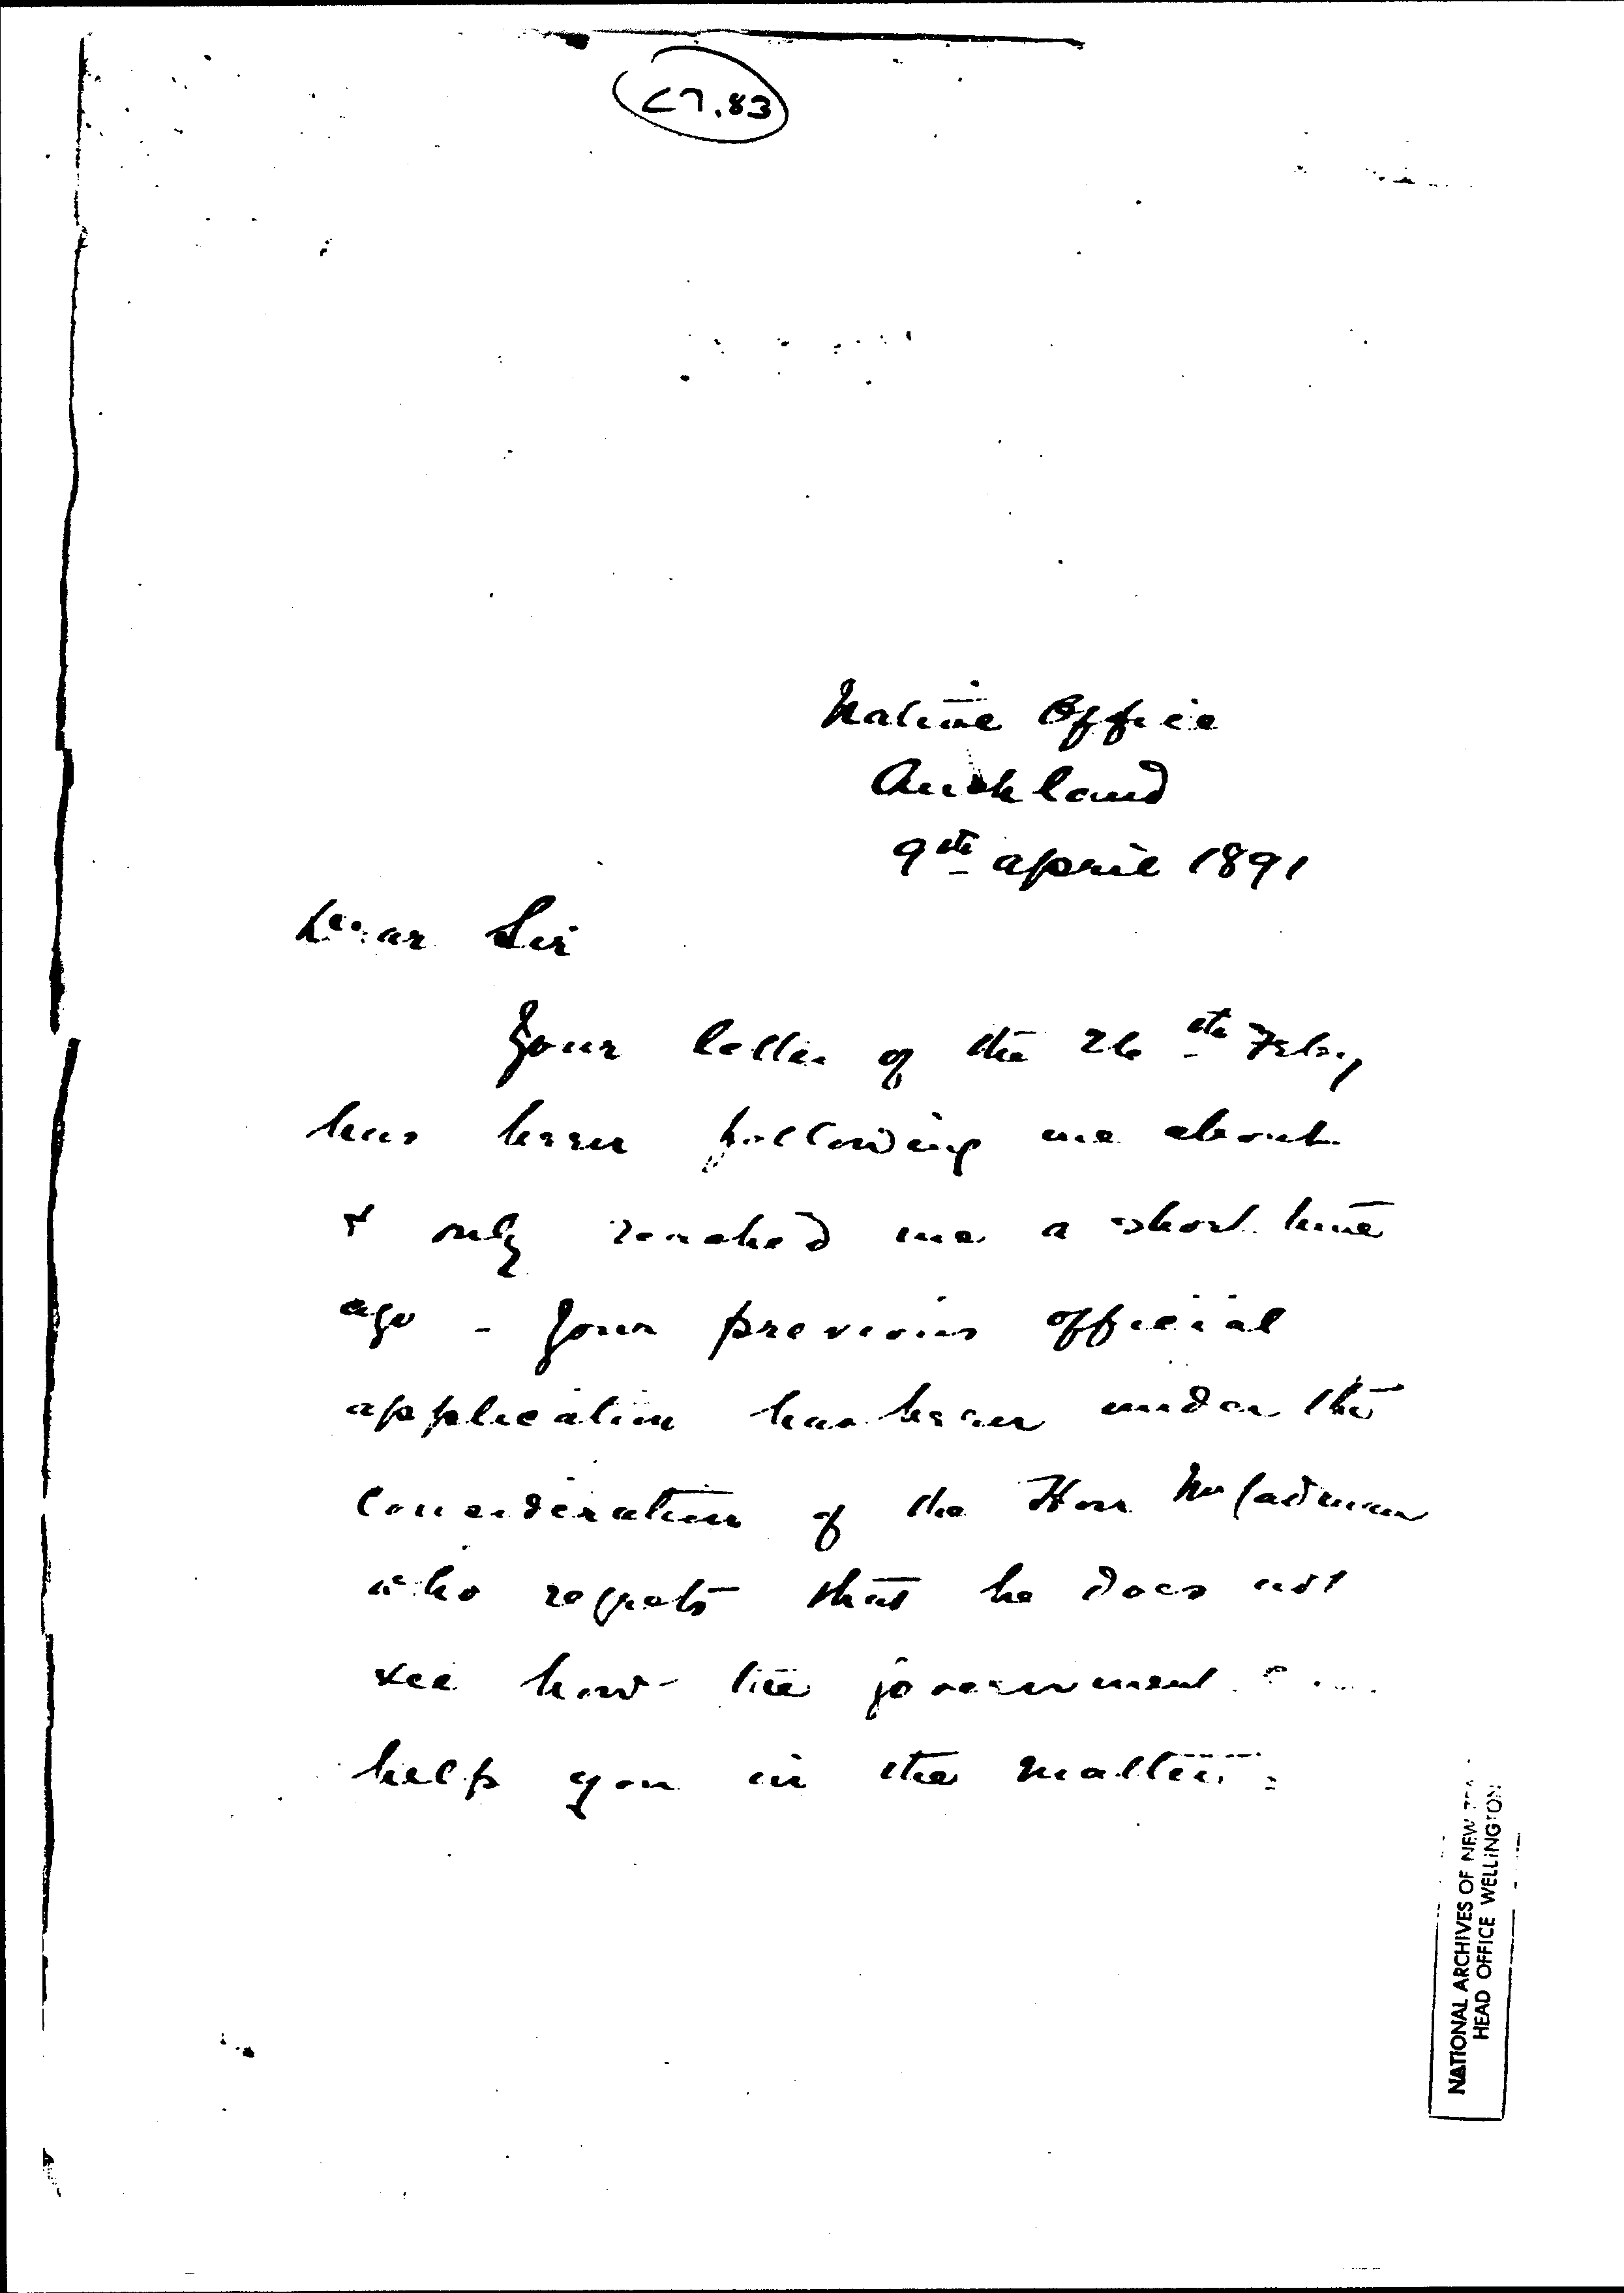 C7.83
Native Office
Auckland
9th april 1891
Dear Sir
Your letter of the 26th Feby
has been following me about
& only reached me a short time
ago - Your previous official
application has been under the
Consideration of the Hon Mr Cadman
who regrets that he does not
see how the government
help you in the matter.
NATIONAL ARCHIVES OF NEW
HEAD OFFICE WELLINGTON